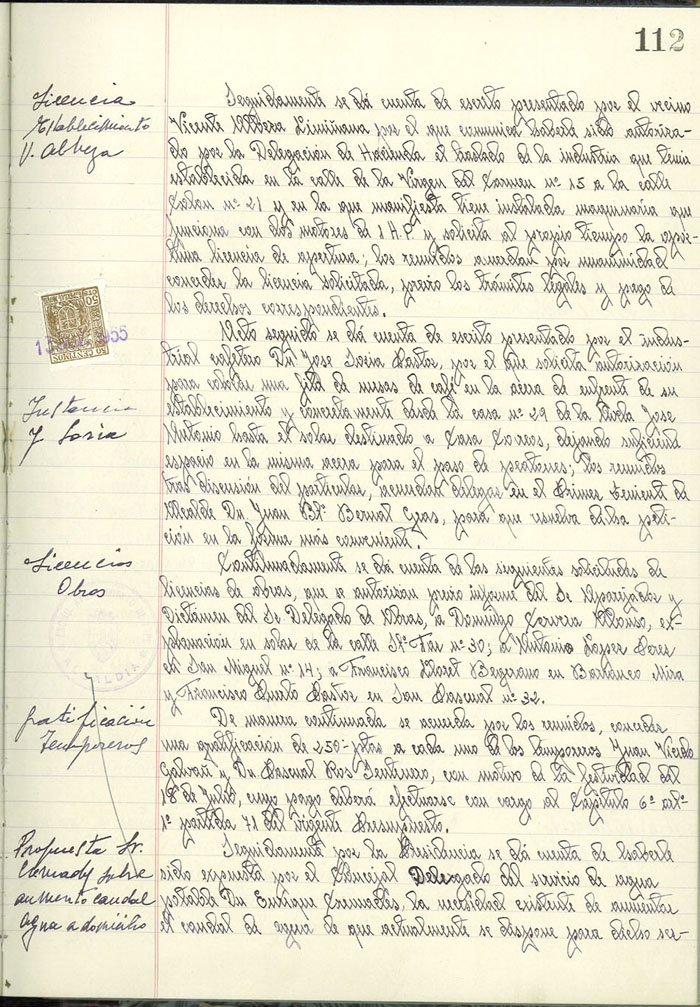 112
Licencia
Establecimiento
V. Albega
Seguidamente se dá cuenta de escrito presentado por el vecino
Vicente Albera Limiñana por el que comunica haberle sido autoriza-
do por la Delegación de Hacienda el traslado de la industria que tenia
establecida en la calle de la Virgen del Carmen nº 15 a la calle
Colon nº 21 y en la que manifiesta tiene instalada maquinaria que
funciona con dos motores de 1 H.P. y solicita al propio tiempo la opor-
tuna licencia de apertura; los reunidos acuerdan por unanimidad
conceder la licencia solicitada, previo los trámites legales y pago de
los derechos correspondientes.
50 CENTIMOS
1955
Instancia
J. Soria
Acto seguido se dá cuenta de escrito presentado por el indus-
trial cafetero Dn Jose Soria Pastor, por el que solicita autorización
para colocar una fila de mesas de café en la acera de enfrente de su
establecimiento y concretamente desde la casa nº 29 de la Avda Jose
Antonio hasta el solar destinado a Casa Correos, dejando suficiente
espacio en la misma acera para el paso de peatones; los reunidos
tras discusión del particular, acuerdan delegar en el Primer Teniente de
Alcalde Dn Juan Btª Bernal Gras, para que resuelva dicha peti-
ción en la forma más conveniente.
Licencias
Obras
ALCALDIA
Continuadamente se dá cuenta de las siguientes solicitudes de
licencias de obras, que se autorizan previo informe del Sr Aparejador y
Dictámen del Sr Delegado de Obras, a Domingo Alonso, ex-
planación en solar de la calle Stª Faz nº 30; a Antonio Lopez Peres
en San Miguel nº 14; a Francisco Lloret en Barranco Mira
y Francisco Pastor en San Pascual nº 32.
Gratificación
Temporeros
De manera continuada se acuerda por los reunidos, conceder
una gratificación de 250- ptas a cada uno de los temporeros Juan
Galvañ y Dn Pascual Ros Sentenero, con motivo de la festividad del
18 de Julio, cuyo pago deberá efectuarse con cargo al Capítulo 6º artº
1º partida 71 del vigente Presupuesto.
Propuesta Sr.
sobre
aumento caudal
agua a domicilio
Seguidamente por la Presidencia se dá cuenta de haberle
sido expuesta por el Concejal Delegado del servicio de agua
potable Dn Enrique, la necesidad existente de aumentar
el caudal de agua de que actualmente se dispone para dicho ser-